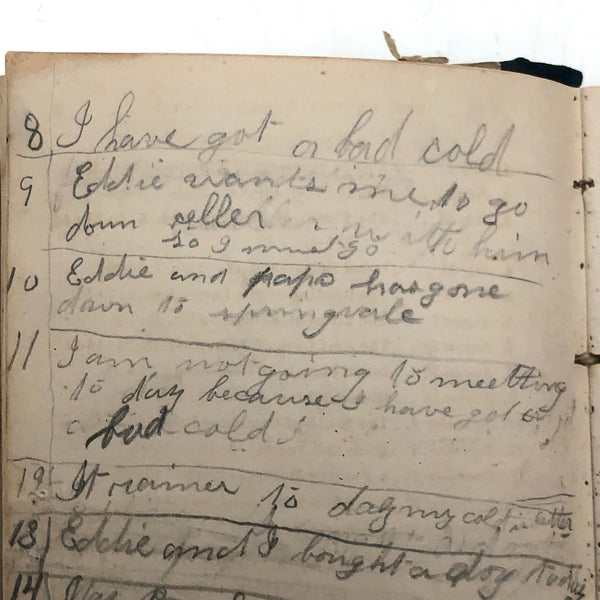 8 I have got a bad cold
9 Eddie wants me to go
down seller with him
so I must go
10 Eddie and papa has gone
down to springvale
11 I am not going to meetting
to day because I have got
a bad cold
12 It to day my cold is
13 Eddie and I bought a
14